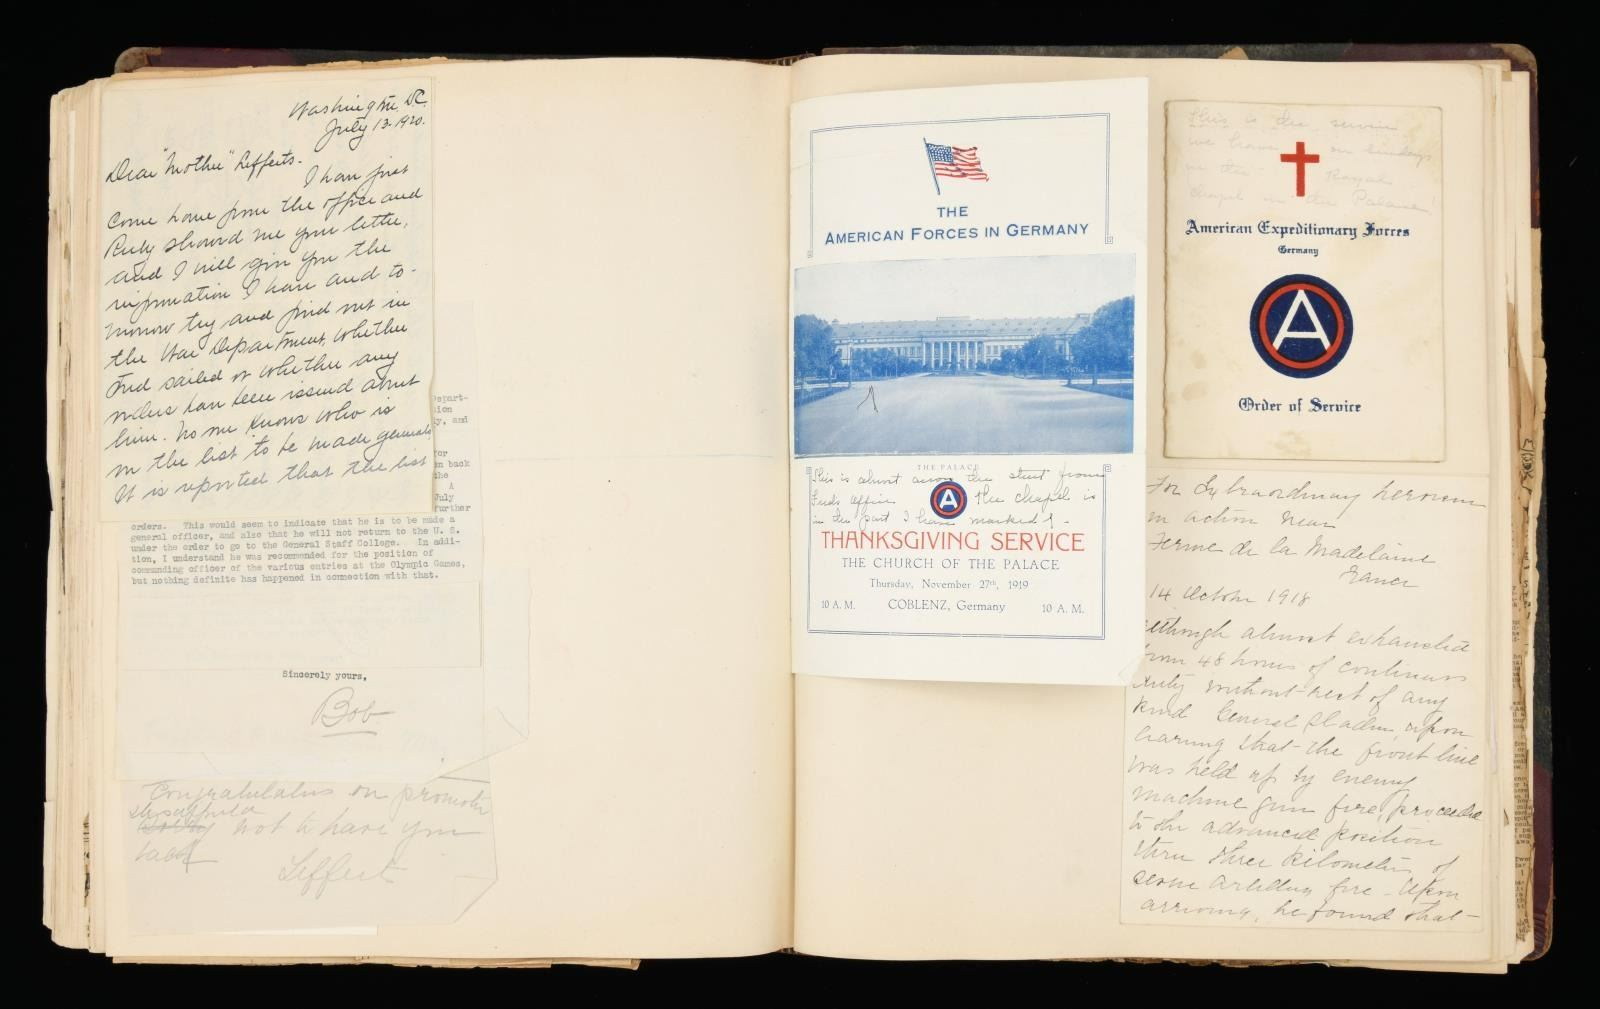 Washington, D.C.
July 13-1920.
Dear "Mother" Lefferts.
I have just
come home from the office and
Ruly showed me your letter,
and I will give you the
information I have and to-
morrow try and find out in
the War Department, whether
Fred sailed or whether any
orders have been issued about
him. No one knows who is
on the list to be made generals
It is reported that the list
epart-
ion
y, and
for
n back
he
A
July
further
orders. This would seem to indicate that he is to be made a
general officer, and also that he will not return to the U. S.
under the order to go to the General Staff College. In addi-
tion, I understand he was recommended for the position of
commanding officer of the various entries at the Olympic Games,
but nothing definite has happened in connection with that.
Sincerely yours,
Bob
Congratulations on promotion
not to have you
back
Leffert
THE
AMERICAN FORCES IN GERMANY
THE PALACE
This is almost across the street from
Freds office the chapel is
in the part I have marked
A
THANKSGIVING SERVICE
THE CHURCH OF THE PALACE
Thursday, November 27th, 1919
10 A. M. COBLENZ, Germany 10 A. M.
This is the service
we have on Sundays
in the Royal
chapel in the Palace!
American Expeditionary Forces
Germany
A
Order of Service
For Extraordinary heroism
in action near
Ferme de la Madelaine
France
14 October 1918
Although almost exhausted
from 48 hours of continuous
duty without rest of any
kind General Sladen, upon
hearing that the front line
was held up by enemy
machine gun fire, proceeded
to the advanced position
thru three kilometers of
severe artillery fire - Upon
arriving, he found that-